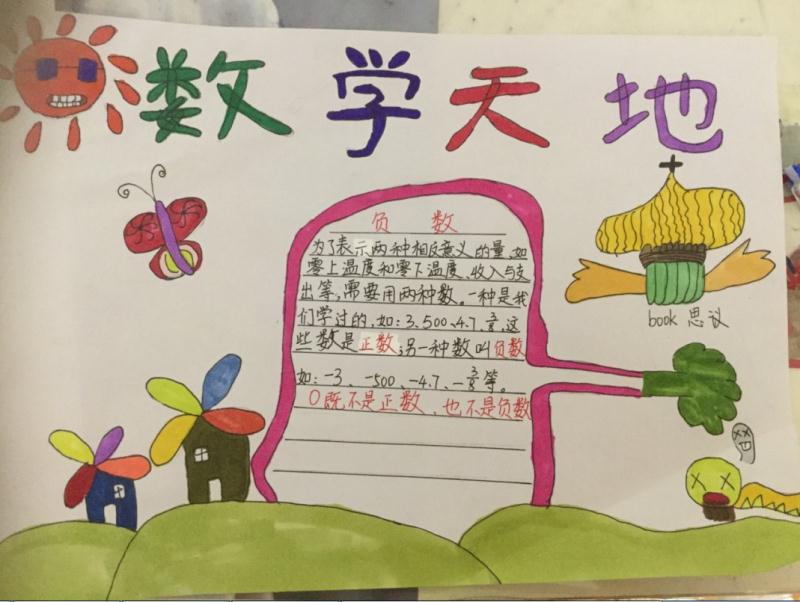 数学天地
负数
为了表示两种相反意义的量,如
零上温度和零下温度、收入与支
出等,需要用两种数。一种是我
们学过的,如:3、500、4.7、3/8,这
些数是正数;另一种数叫负数
如:-3、-500、-4.7、-3/8等。
0既不是正数,也不是负数
book 思议